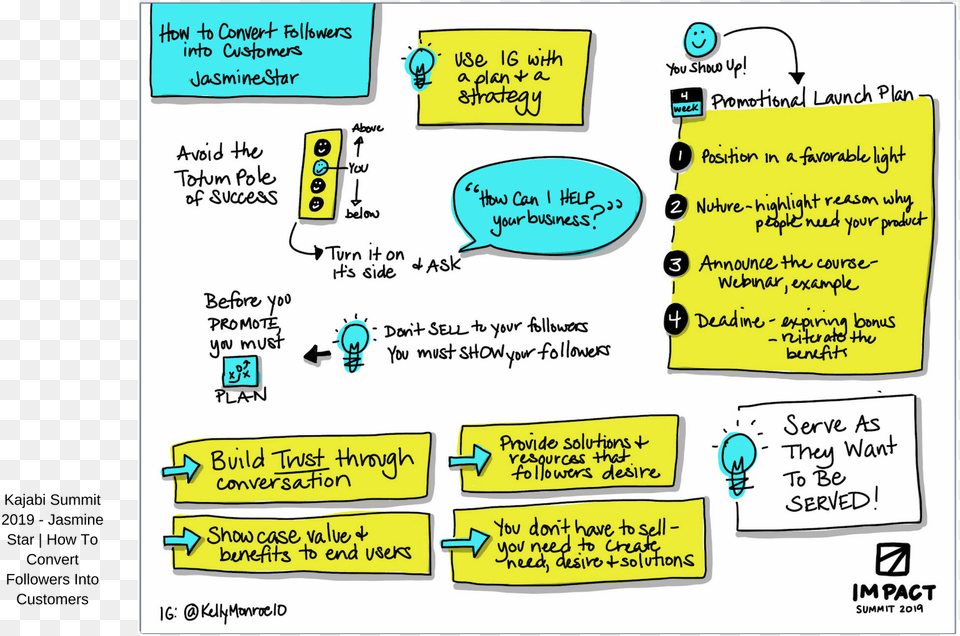 How to Convert Followers
into Customers
JasmineStar
Use IG with
a plan & a
strategy
You Show Up!
4
week
Promotional Launch Plan
1 Position in a favorable light
2 Nuture - highlight reason why
people need your product
3 Announce the course -
Webinar, example
4 Deadine - expiring bonus
- reiterate the
benefits
Avoid the
Totum Pole
of Success
Above
You
below
Turn it on
it's side & ASK
"How Can I HELP
your business?"
Before you
PROMOTE,
you must
PLAN
Don't SELL to your followers
You must SHOW your followers
Build Trust through
conversation
Provide solutions &
resources that
followers desire
Showcase value &
benefits to end users
You don't have to sell -
you need to create
need, desire & solutions
Serve As
They Want
To Be
SERVED!
IG: @KellyMonroe10
IMPACT
SUMMIT 2019
Kajabi Summit
2019 - Jasmine
Star | How To
Convert
Followers Into
Customers